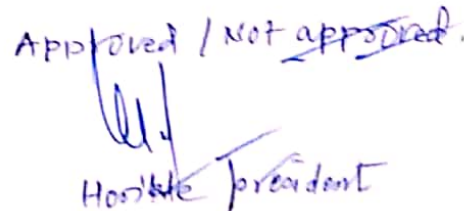 Approved / Not approved.
Hon'ble President